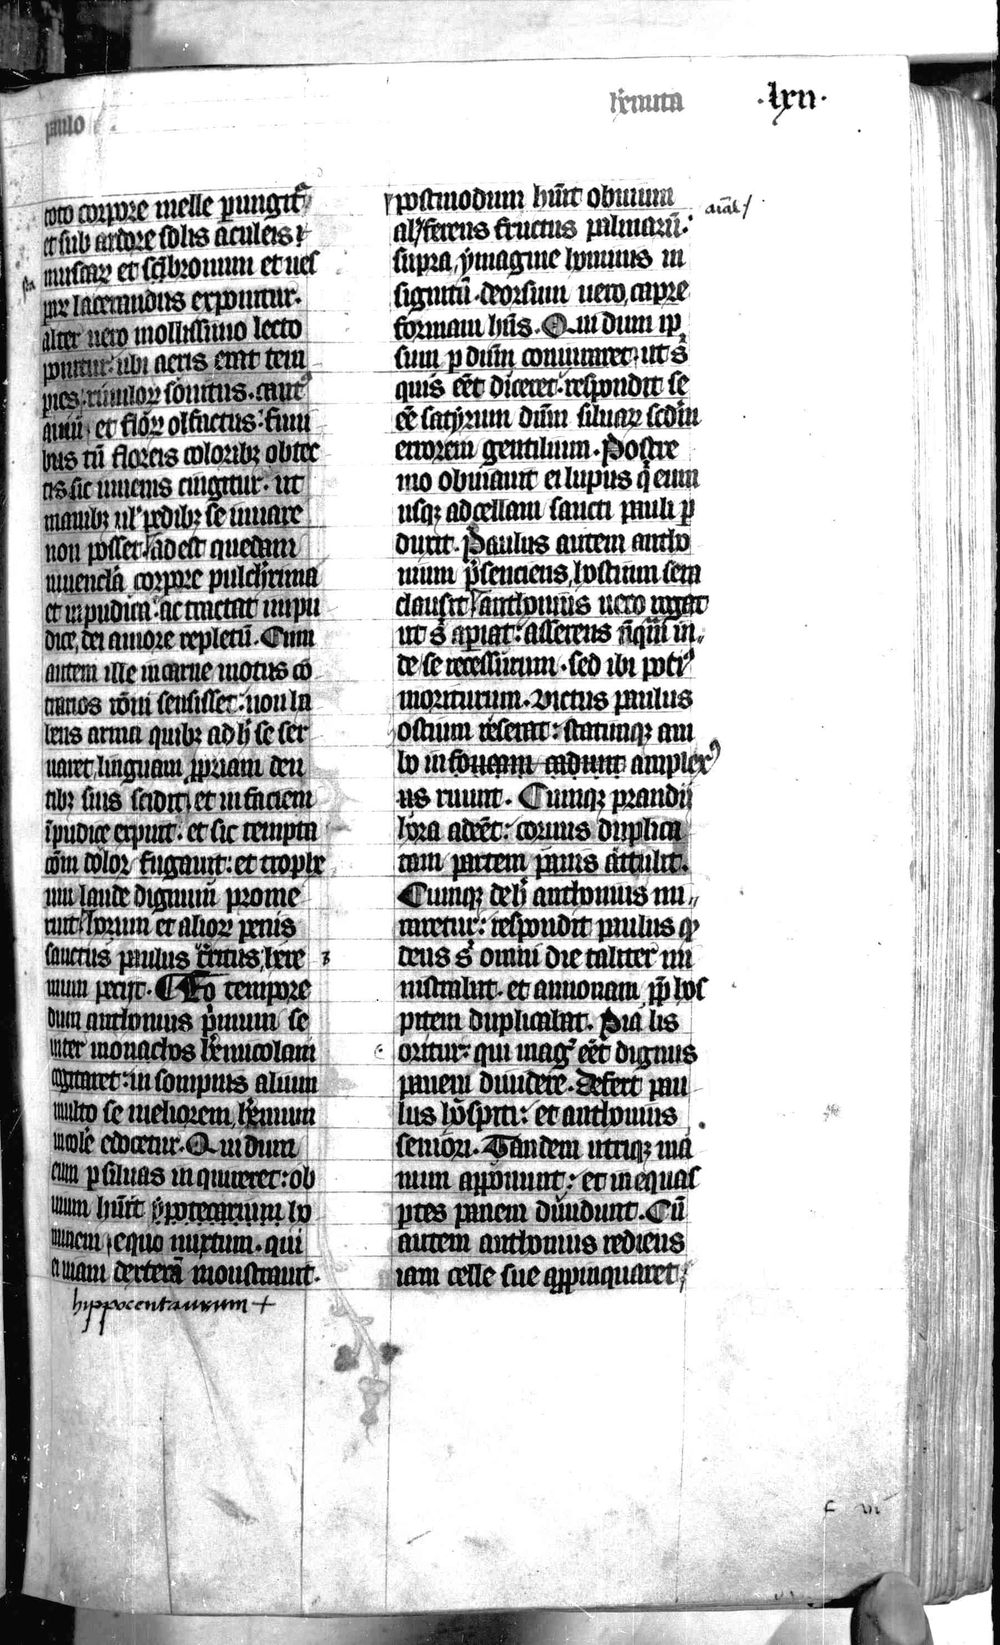 paulo
hr̄mita
.lxii.
toto corpore melle pungitᷓ
et sub ardore solis aculeis
muscaꝝ et scͣbronum et ues
paꝝ lacerandus exponitur.
alter uero mollissimo lecto
ponitur: ubi aeris erat tem
pies riuuloꝝ sonitus. cantꝰ
auiū et floꝝ olfactus: funi
bus tn̄ floreis coloribꝫ obtec
tis sic iuuenis cingitur. ut
manibꝫ ul̛ pedibꝫ se iuuare
non posset adest quedam
iuuencla corpore pulcherima
et inpudica: ac tractat inpu
dice, dei amore repletū. Cum
autem ille in carne motus cō
trarios rōni sensisset: non ha
bens arma quibꝫ ab h̛ se ser
uaret, linguam ꝓpriam den
tibꝫ suis scidit, et in faciem
īpudice expuit: et sic tempta
cōm dolor fugauit: et trophe
um laude dignum prome
ruit horum et alioꝝ penis
sanctus paulus tr̄ritus here
mum petijt. Eo tempore
dum anthonius p̄mum se
inter monachos hr̄emicolam
cogitaret: in sompnis alium
multo se meliorem, hr̄emum
incolē edocetur. Qui dum
eum ꝑ siluas inquireret: ob
uium hūit ypotecarium ho
minem equo mixtum. qui
ei uiam dexterā monstrauit.
hippocentaurum +
postmodum hūit obuium
aīal /
al ferens fructus palmarū:
supra ymagine hominis in
signitū. deorsum uero, capre
formam hn̄s. Qui dum ip
sum ꝑ dūm coniuraret, ut sͥ
quis eēt diceret: respondit se
eē satyrum dūm siluaꝝ scd̄m
errorem gentilium. Postre
mo obuiauit ei lupus qͥ eum
usqꝫ ad cellam sancti pauli ꝑ
duxit. Paulus autem antho
nium p̄senciens, hostium sera
clausit anthonius uero rogat
ut sͥ apiat: asserens nͣqͣm in
de se recessurum. sed ibi pociꝰ
moriturum. Victus paulus
ostium reserat: statimqꝫ am
bo in foueam cadunt amplexꝰ
us ruunt. Cumqꝫ prandij
hora adeēt: coruus duplica
tam partem panis attulit.
Cumqꝫ de h̛ anthonius mi
raretur: respondit paulus qͥ
deus sͥ omni die taliter mi
nistrabat. et annonam ꝓp hos
pitem duplicabat. Pia lis
oritur: qui magͥ eēt dignus
panem diuidere. Defert pau
lus hospiti: et anthonius
seniori. Tandem utriqꝫ ma
num apponunt: et in equas
ꝑtes panem diuidunt. Cū
autem anthonius rediens
iam celle sue appinquaret